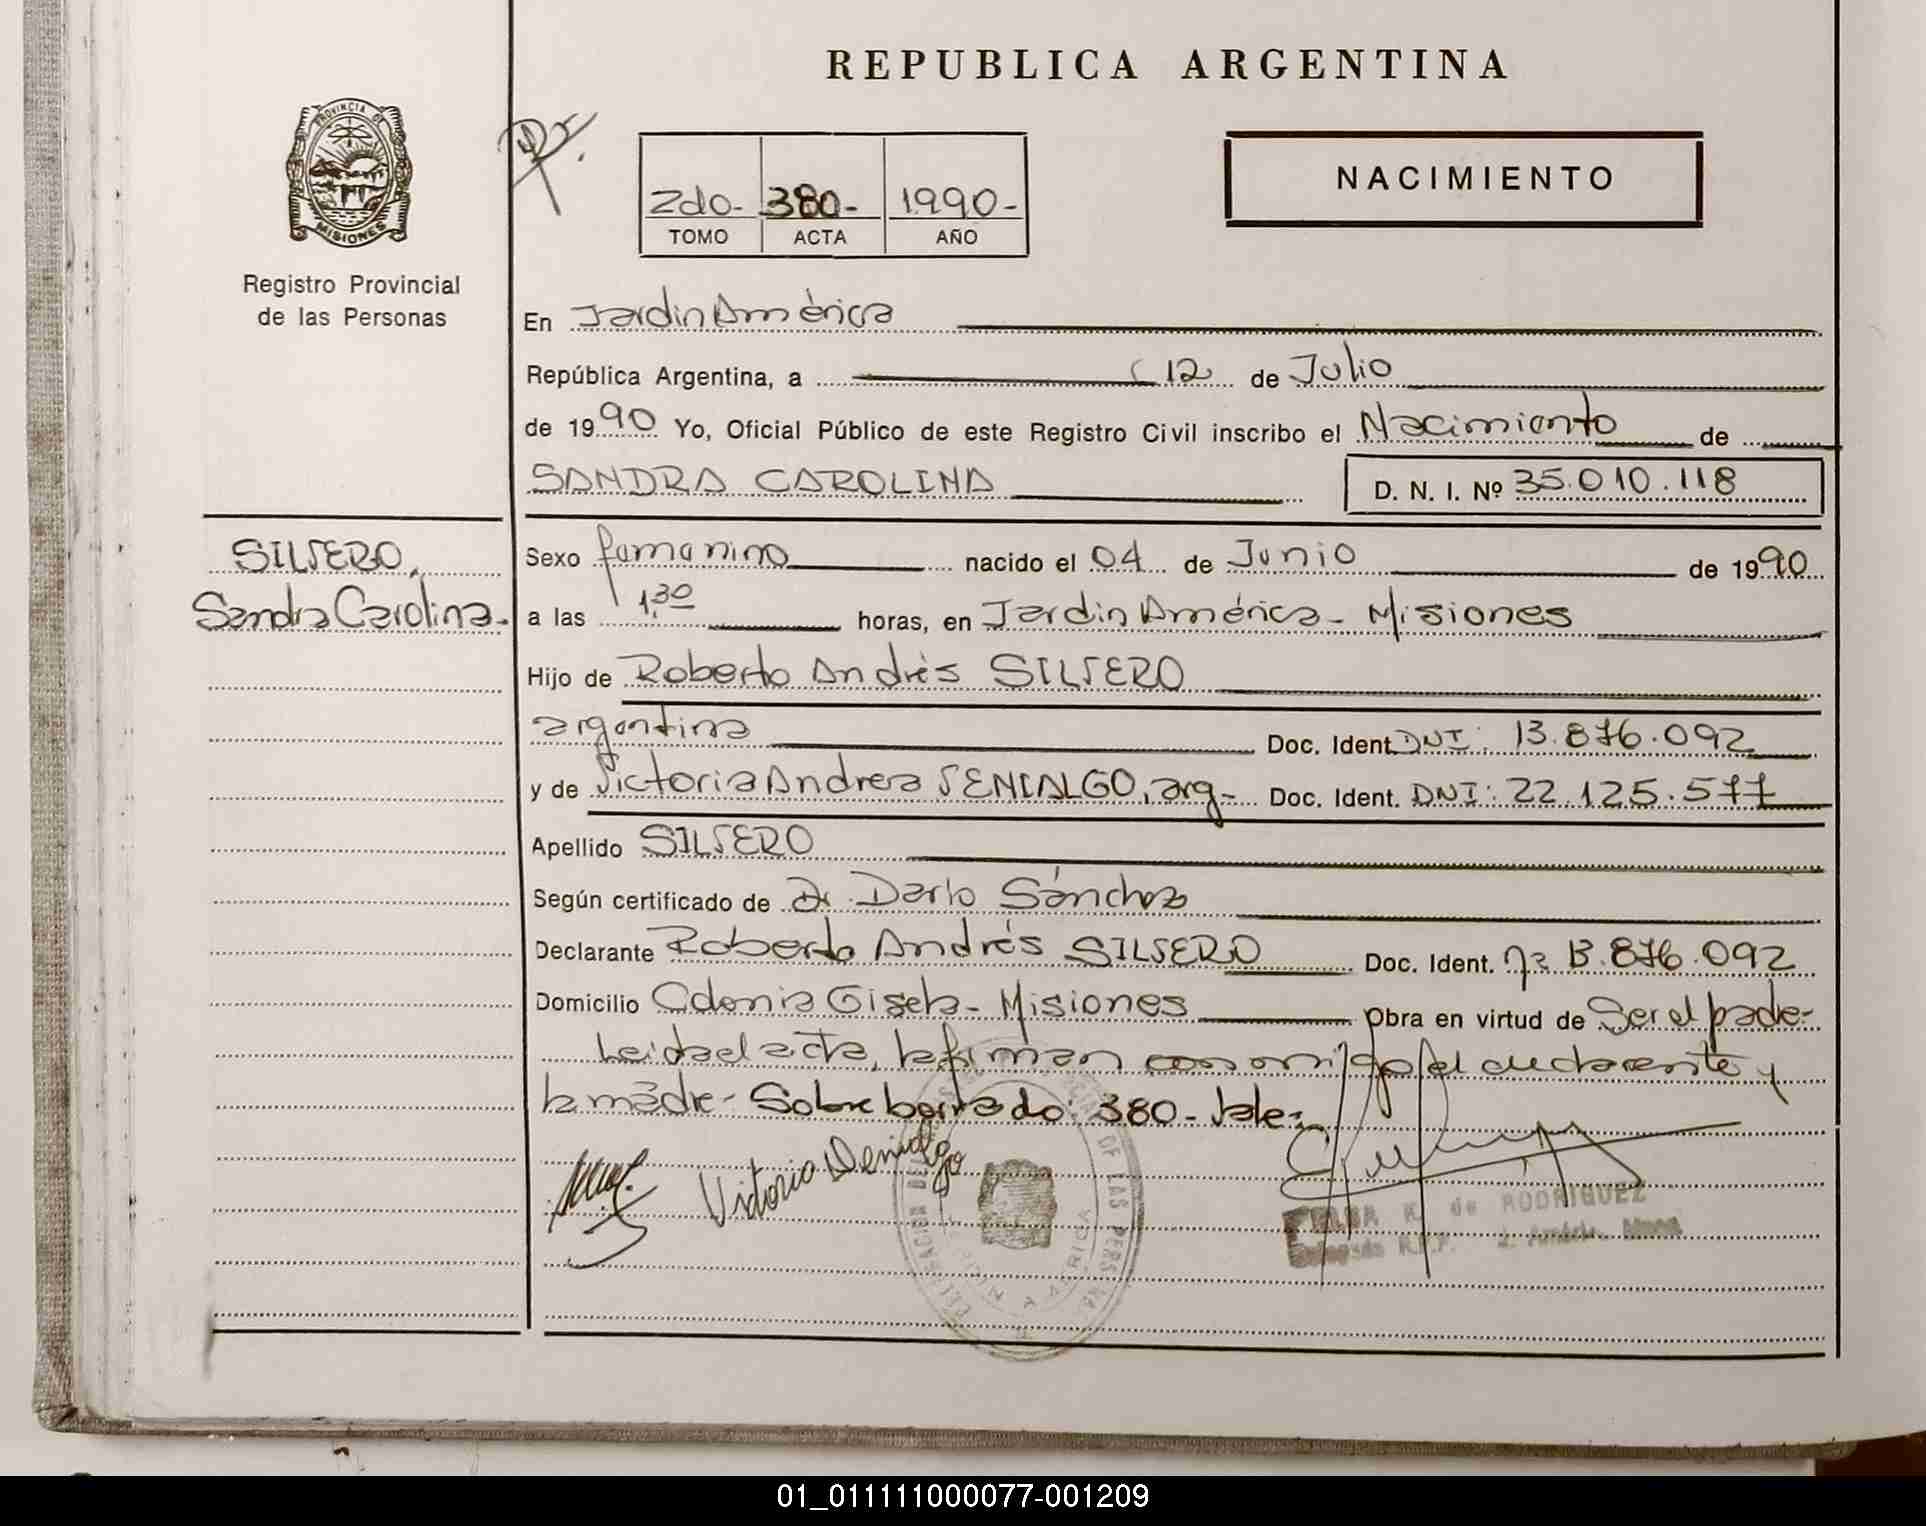 REPUBLICA ARGENTINA
PROVINCIA DE
MISIONES
Registro Provincial
de las Personas
2do- 380- 1990-
TOMO ACTA AÑO
NACIMIENTO
En Jardin América
República Argentina, a 12 de Julio
de 1990 Yo, Oficial Público de este Registro Civil inscribo el Nacimiento de
SANDRA CAROLINA D. N. I. Nº 35.010.118
SILVERO,
Sandra Carolina-
Sexo femenino nacido el 04 de Junio de 1990
a las 1,30 horas, en Jardin América- Misiones
Hijo de Roberto Andrés SILVERO
argentina Doc. Ident. DNI: 13.876.092
y de Victoria Andrea VENIALGO, arg- Doc. Ident. DNI: 22.125.577
Apellido SILVERO
Según certificado de Dr. Darío Sánchez
Declarante Roberto Andrés SILVERO Doc. Ident. 13.876.092
Domicilio Colonia Gisela- Misiones Obra en virtud de Ser el padre-
Leida el acta, la firman conmigo el declarante y
la madre- Sobre borrado: 380- Vale-
Victoria Venialgo
K. de RODRIGUEZ
DE LAS PERSONAS
AMERICA
01_011111000077-001209